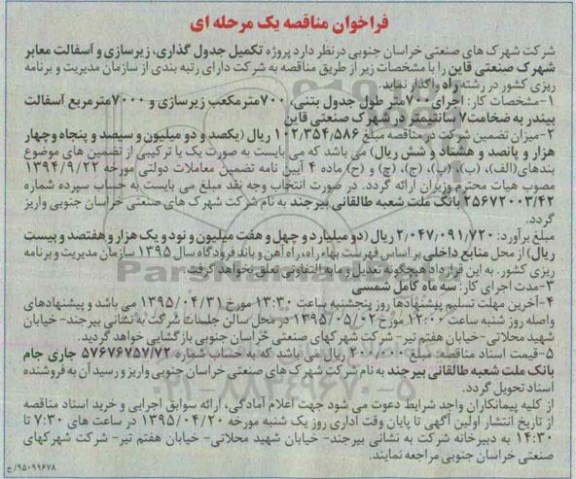 فراخوان مناقصه یک مرحله ای
شرکت شهرک های صنعتی خراسان جنوبی درنظر دارد پروژه تکمیل جدول گذاری، زیرسازی و آسفالت معابر
شهرک صنعتی قاین را با مشخصات زیر از طریق مناقصه به شرکت دارای رتبه بندی از سازمان مدیریت و برنامه
ریزی کشور در رشته راه واگذار نماید.
۱-مشخصات کار: اجرای ۷۰۰متر طول جدول بتنی، ۷۰۰مترمکعب زیرسازی و ۷۰۰۰مترمربع آسفالت
بیندر به ضخامت ۷ سانتیمتر در شهرک صنعتی قاین
۲-میزان تضمین شرکت در مناقصه مبلغ ۱۰۲,۳۵۴,۵۸۶ ریال (یکصد و دو میلیون و سیصد و پنجاه وچهار
هزار و پانصد و هشتاد و شش ریال) می باشد که می بایست به صورت یک یا ترکیبی از تضمین های موضوع
بندهای(الف)، (ب)، (پ)، (ج)، (چ) و (ح) ماده ۴ آیین نامه تضمین معاملات دولتی مورخه ۱۳۹۴/۹/۲۲
مصوب هیات محترم وزیران ارائه گردد. در صورت انتخاب وجه نقد مبلغ می بایست به حساب سپرده شماره
۲۵۶۷۲۰۰۳/۴۲ بانک ملت شعبه طالقانی بیرجند به نام شرکت شهرک های صنعتی خراسان جنوبی واریز
گردد.
مبلغ برآورد: ۲,۰۴۷,۰۹۱,۷۲۰ ریال (دو میلیارد و چهل و هفت میلیون و نود و یک هزار و هفتصد و بیست
ریال) از محل منابع داخلی بر اساس فهرست بهاء راه، راه آهن و باند فرودگاه سال ۱۳۹۵ سازمان مدیریت و برنامه
ریزی کشور. به این قرارداد هیچگونه تعدیل و مابه التفاوتی تعلق نخواهد گرفت.
۳-مدت اجرای کار: سه ماه کامل شمسی
۴-آخرین مهلت تسلیم پیشنهادها روز پنجشنبه ساعت ۱۳:۳۰ مورخ ۱۳۹۵/۰۴/۳۱ می باشد و پیشنهادهای
واصله روز شنبه ساعت ۱۲:۰۰ مورخ ۱۳۹۵/۰۵/۰۲ در محل سالن جلسات شرکت به نشانی بیرجند- خیابان
شهید محلاتی-خیابان هفتم تیر- شرکت شهرکهای صنعتی خراسان جنوبی بازگشایی خواهد گردید.
۵-قیمت اسناد مناقصه: مبلغ ۲۰۰,۰۰۰ ریال می باشد که به حساب شماره ۵۷۶۷۶۷۵۷/۷۲ جاری جام
بانک ملت شعبه طالقانی بیرجند به نام شرکت شهرک های صنعتی خراسان جنوبی واریز و رسید آن به فروشنده
اسناد تحویل گردد.
از کلیه پیمانکاران واجد شرایط دعوت می شود جهت اعلام آمادگی، ارائه سوابق اجرایی و خرید اسناد مناقصه
از تاریخ انتشار اولین آگهی تا پایان وقت اداری روز یک شنبه مورخه ۱۳۹۵/۰۴/۲۰ در ساعت های ۷:۳۰ تا
۱۴:۳۰ به دبیرخانه شرکت به نشانی بیرجند- خیابان شهید محلاتی- خیابان هفتم تیر- شرکت شهرکهای
صنعتی خراسان جنوبی مراجعه نمایند.
۹۵۰۹۹۶۷۸/ح
۰۲۱-۸۸۳۴۹۶۷۰-۵